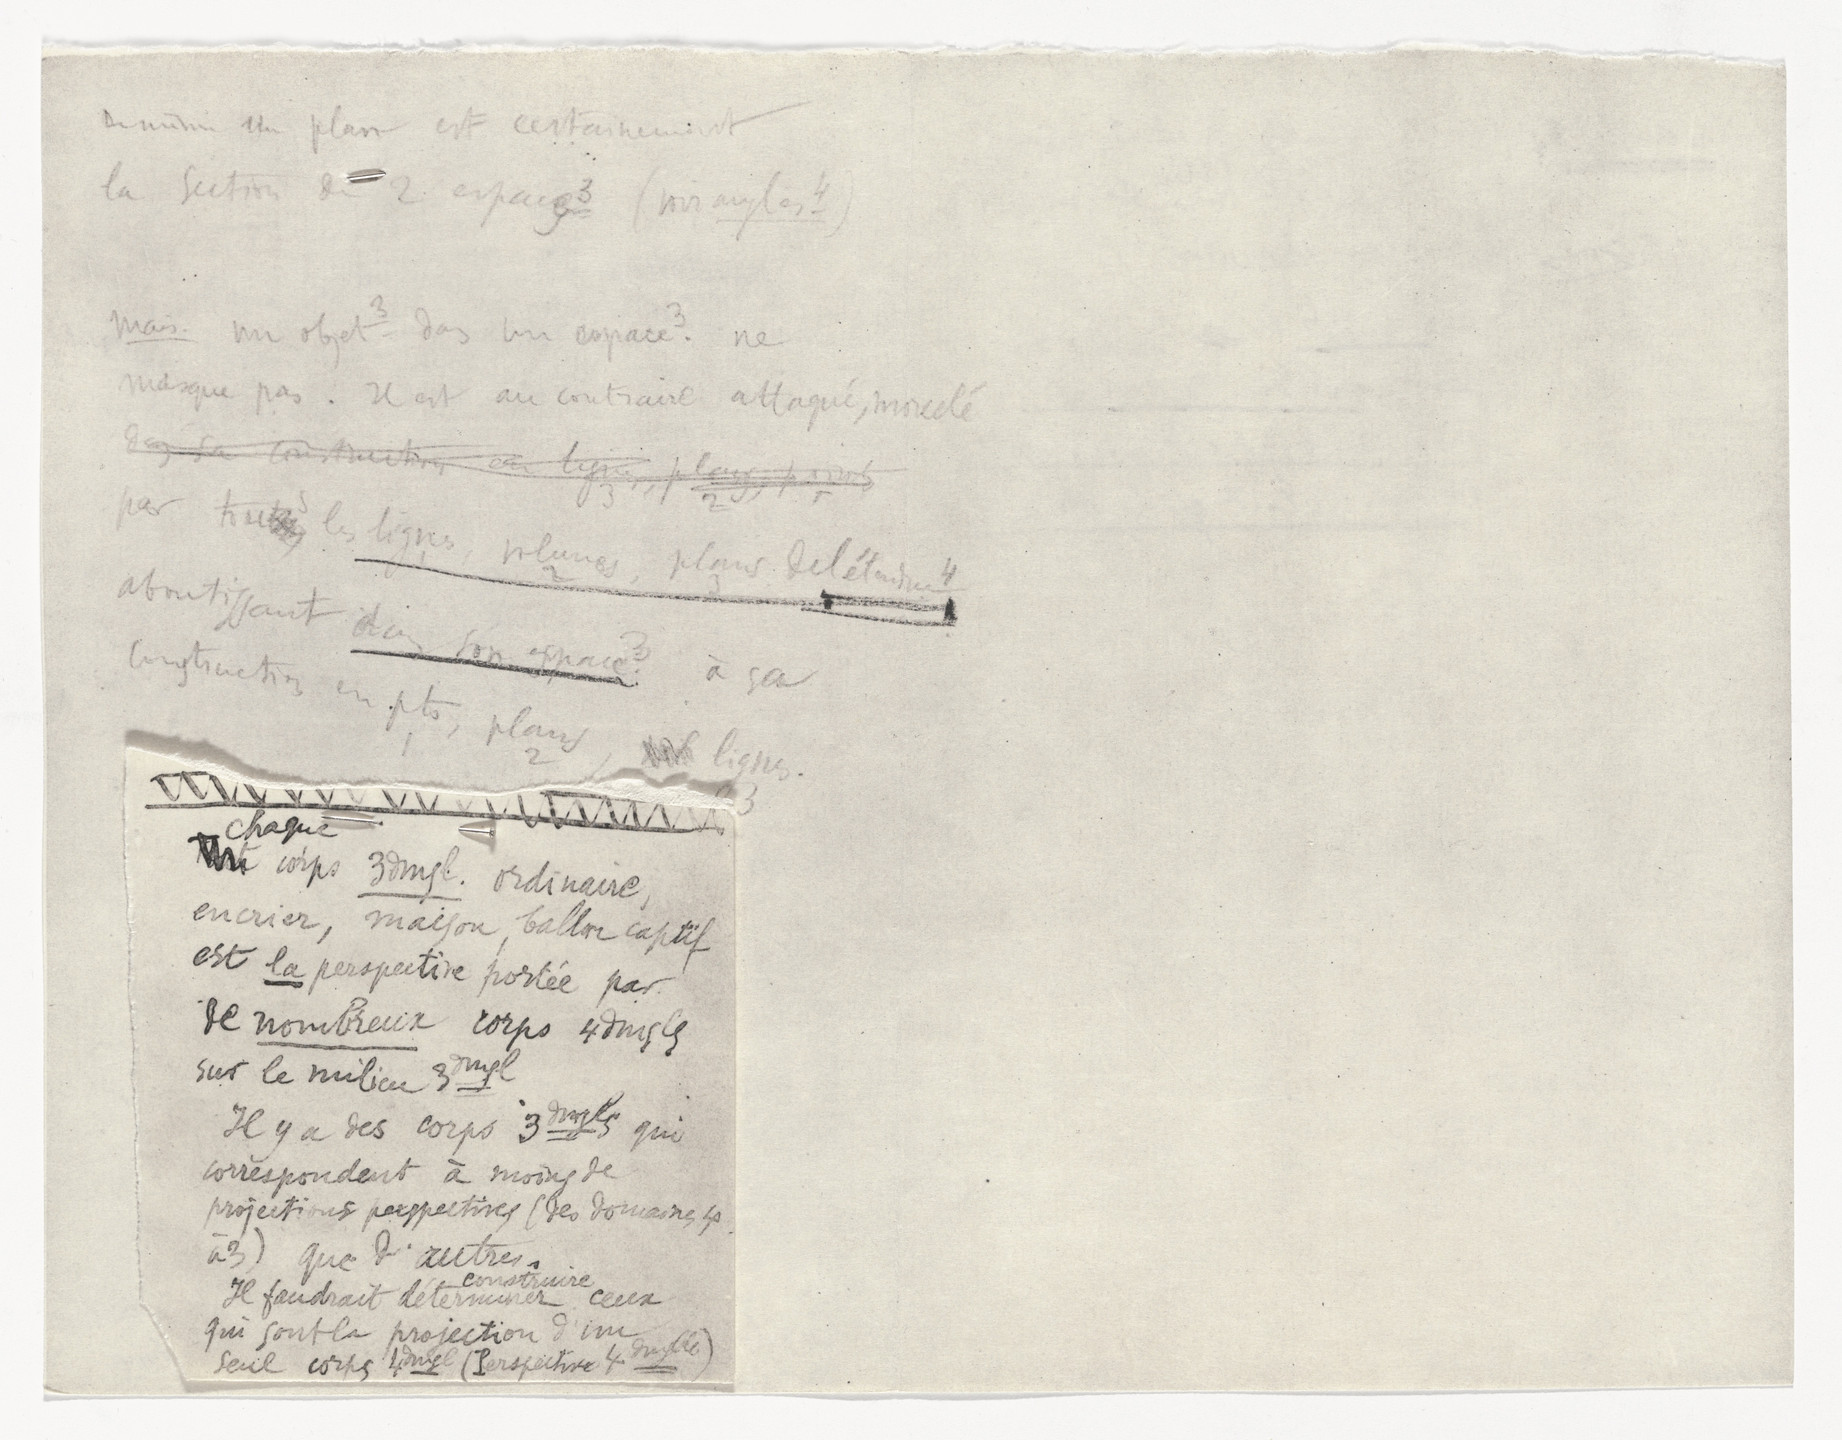 De même un plan est certainement
la section de 2 espaces³ (voir angles⁴)
mais. un objet³ das un espace³. ne
masque pas. Il est au contraire attaqué, morcelé
das sa construction en lignes, plans, points
3 2 1
par toutes les lignes, volumes, plans de l'étendue⁴
1 2 3
aboutissant dans son espace³ à sa
construction en pts, plans, lignes.
1 2 3
chaque
corps 3dmgl. ordinaire,
encrier, maison, ballon captif
est la perspective portée par
de nombreux corps 4dmgls
sur le milieu 3dmgl
Il y a des corps 3dmgls qui
correspondent à moins de
projections perspectives (des domaines 4
à 3) que d'autres.
construire
Il faudrait déterminer ceux
qui sont la projection d'un
seul corps 4dmgl (Perspective 4dmglle)